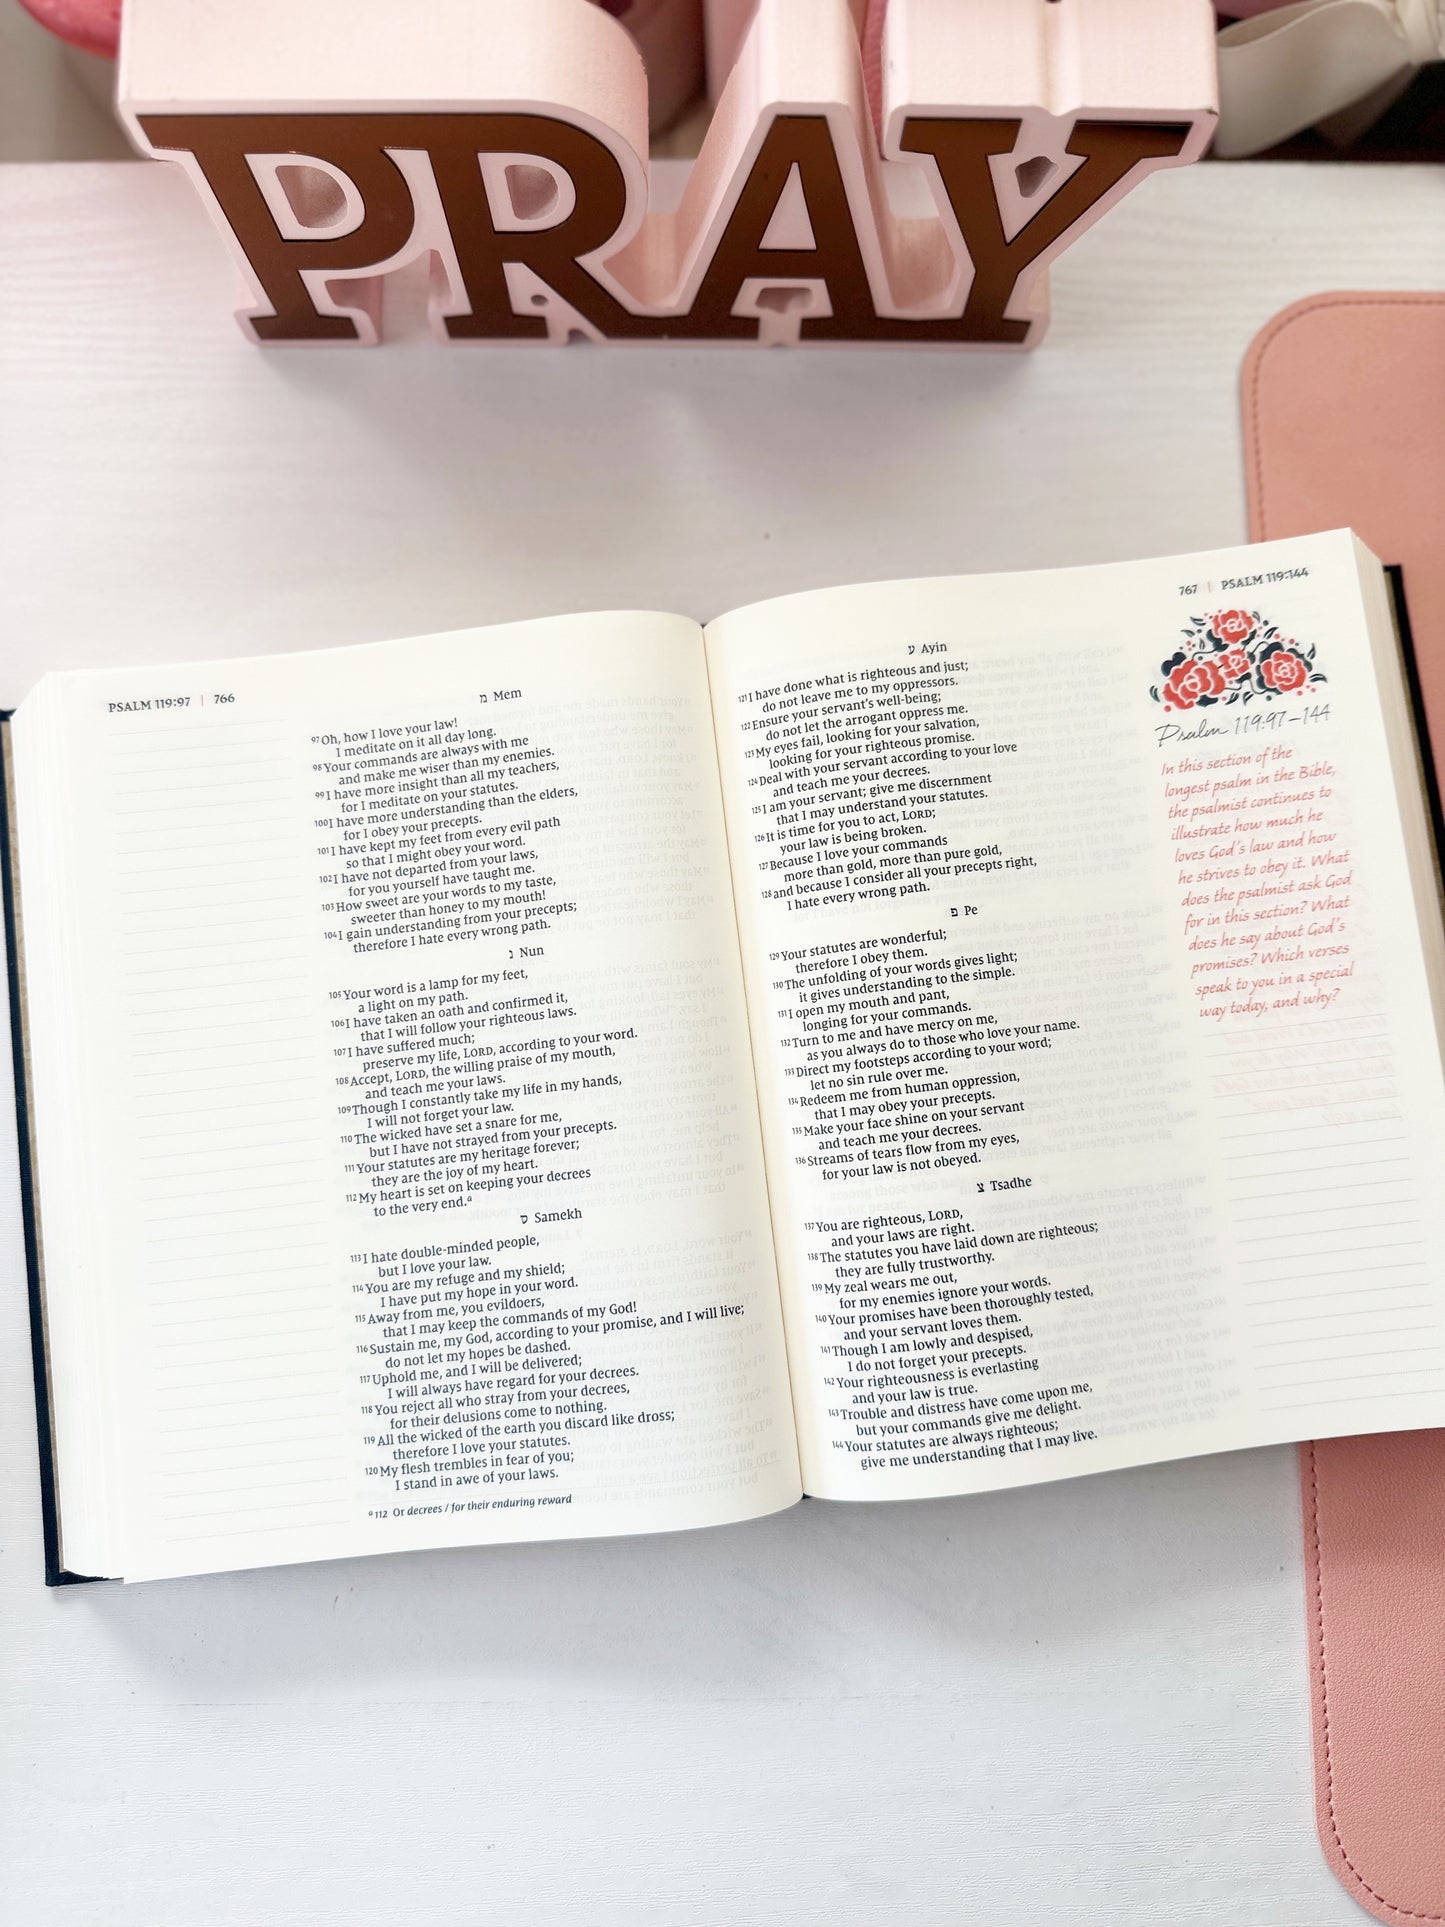 PRAY
PSALM 119:97 | 766
מ Mem
97 Oh, how I love your law!
I meditate on it all day long.
98 Your commands are always with me
and make me wiser than my enemies.
99 I have more insight than all my teachers,
for I meditate on your statutes.
100 I have more understanding than the elders,
for I obey your precepts.
101 I have kept my feet from every evil path
so that I might obey your word.
102 I have not departed from your laws,
for you yourself have taught me.
103 How sweet are your words to my taste,
sweeter than honey to my mouth!
104 I gain understanding from your precepts;
therefore I hate every wrong path.
נ Nun
105 Your word is a lamp for my feet,
a light on my path.
106 I have taken an oath and confirmed it,
that I will follow your righteous laws.
107 I have suffered much;
preserve my life, LORD, according to your word.
108 Accept, LORD, the willing praise of my mouth,
and teach me your laws.
109 Though I constantly take my life in my hands,
I will not forget your law.
110 The wicked have set a snare for me,
but I have not strayed from your precepts.
111 Your statutes are my heritage forever;
they are the joy of my heart.
112 My heart is set on keeping your decrees
to the very end.a
ס Samekh
113 I hate double-minded people,
but I love your law.
114 You are my refuge and my shield;
I have put my hope in your word.
115 Away from me, you evildoers,
that I may keep the commands of my God!
116 Sustain me, my God, according to your promise, and I will live;
do not let my hopes be dashed.
117 Uphold me, and I will be delivered;
I will always have regard for your decrees.
118 You reject all who stray from your decrees,
for their delusions come to nothing.
119 All the wicked of the earth you discard like dross;
therefore I love your statutes.
120 My flesh trembles in fear of you;
I stand in awe of your laws.
a 112 Or decrees / for their enduring reward
767 | PSALM 119:144
ע Ayin
121 I have done what is righteous and just;
do not leave me to my oppressors.
122 Ensure your servant's well-being;
do not let the arrogant oppress me.
123 My eyes fail, looking for your salvation,
looking for your righteous promise.
124 Deal with your servant according to your love
and teach me your decrees.
125 I am your servant; give me discernment
that I may understand your statutes.
126 It is time for you to act, LORD;
your law is being broken.
127 Because I love your commands
more than gold, more than pure gold,
128 and because I consider all your precepts right,
I hate every wrong path.
פ Pe
129 Your statutes are wonderful;
therefore I obey them.
130 The unfolding of your words gives light;
it gives understanding to the simple.
131 I open my mouth and pant,
longing for your commands.
132 Turn to me and have mercy on me,
as you always do to those who love your name.
133 Direct my footsteps according to your word;
let no sin rule over me.
134 Redeem me from human oppression,
that I may obey your precepts.
135 Make your face shine on your servant
and teach me your decrees.
136 Streams of tears flow from my eyes,
for your law is not obeyed.
צ Tsadhe
137 You are righteous, LORD,
and your laws are right.
138 The statutes you have laid down are righteous;
they are fully trustworthy.
139 My zeal wears me out,
for my enemies ignore your words.
140 Your promises have been thoroughly tested,
and your servant loves them.
141 Though I am lowly and despised,
I do not forget your precepts.
142 Your righteousness is everlasting
and your law is true.
143 Trouble and distress have come upon me,
but your commands give me delight.
144 Your statutes are always righteous;
give me understanding that I may live.
Psalm 119:97–144
In this section of the
longest psalm in the Bible,
the psalmist continues to
illustrate how much he
loves God's law and how
he strives to obey it. What
does the psalmist ask God
for in this section? What
does he say about God's
promises? Which verses
speak to you in a special
way today, and why?